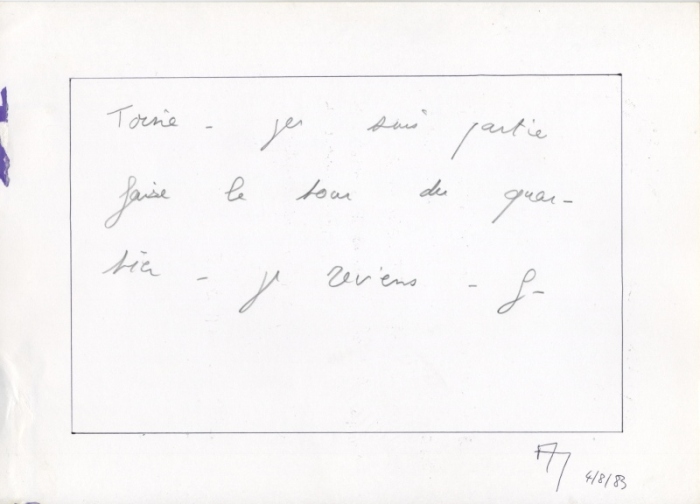 Toine - je suis partie
faire le tour du quar-
tier - je reviens - G-
4/8/83